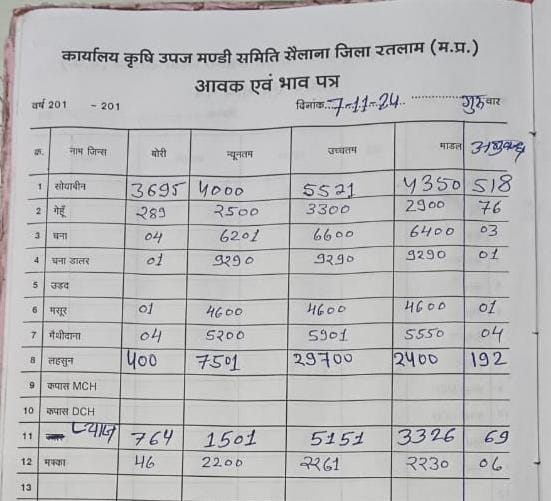 कार्यालय कृषि उपज मण्डी समिति सैलाना जिला रतलाम (म.प्र.)
आवक एवं भाव पत्र
वर्ष 201 - 201 दिनांक..7-11-24.. गुरुवार
क्र. नाम जिन्स बोरी न्यूनतम उच्चतम माडल अनुबन्ध
1 सोयाबीन 3695 4000 5521 4350 518
2 गेहूँ 289 2500 3300 2900 76
3 चना 04 6201 6600 6400 03
4 चना डालर 01 9290 9290 9290 01
5 उड़द
6 मसूर 01 4600 4600 4600 01
7 मैथीदाना 04 5200 5901 5550 04
8 लहसुन 400 7501 29700 2400 192
9 कपास MCH
10 कपास DCH
11 प्याज 764 1501 5151 3326 69
12 मक्का 46 2200 2261 2230 06
13